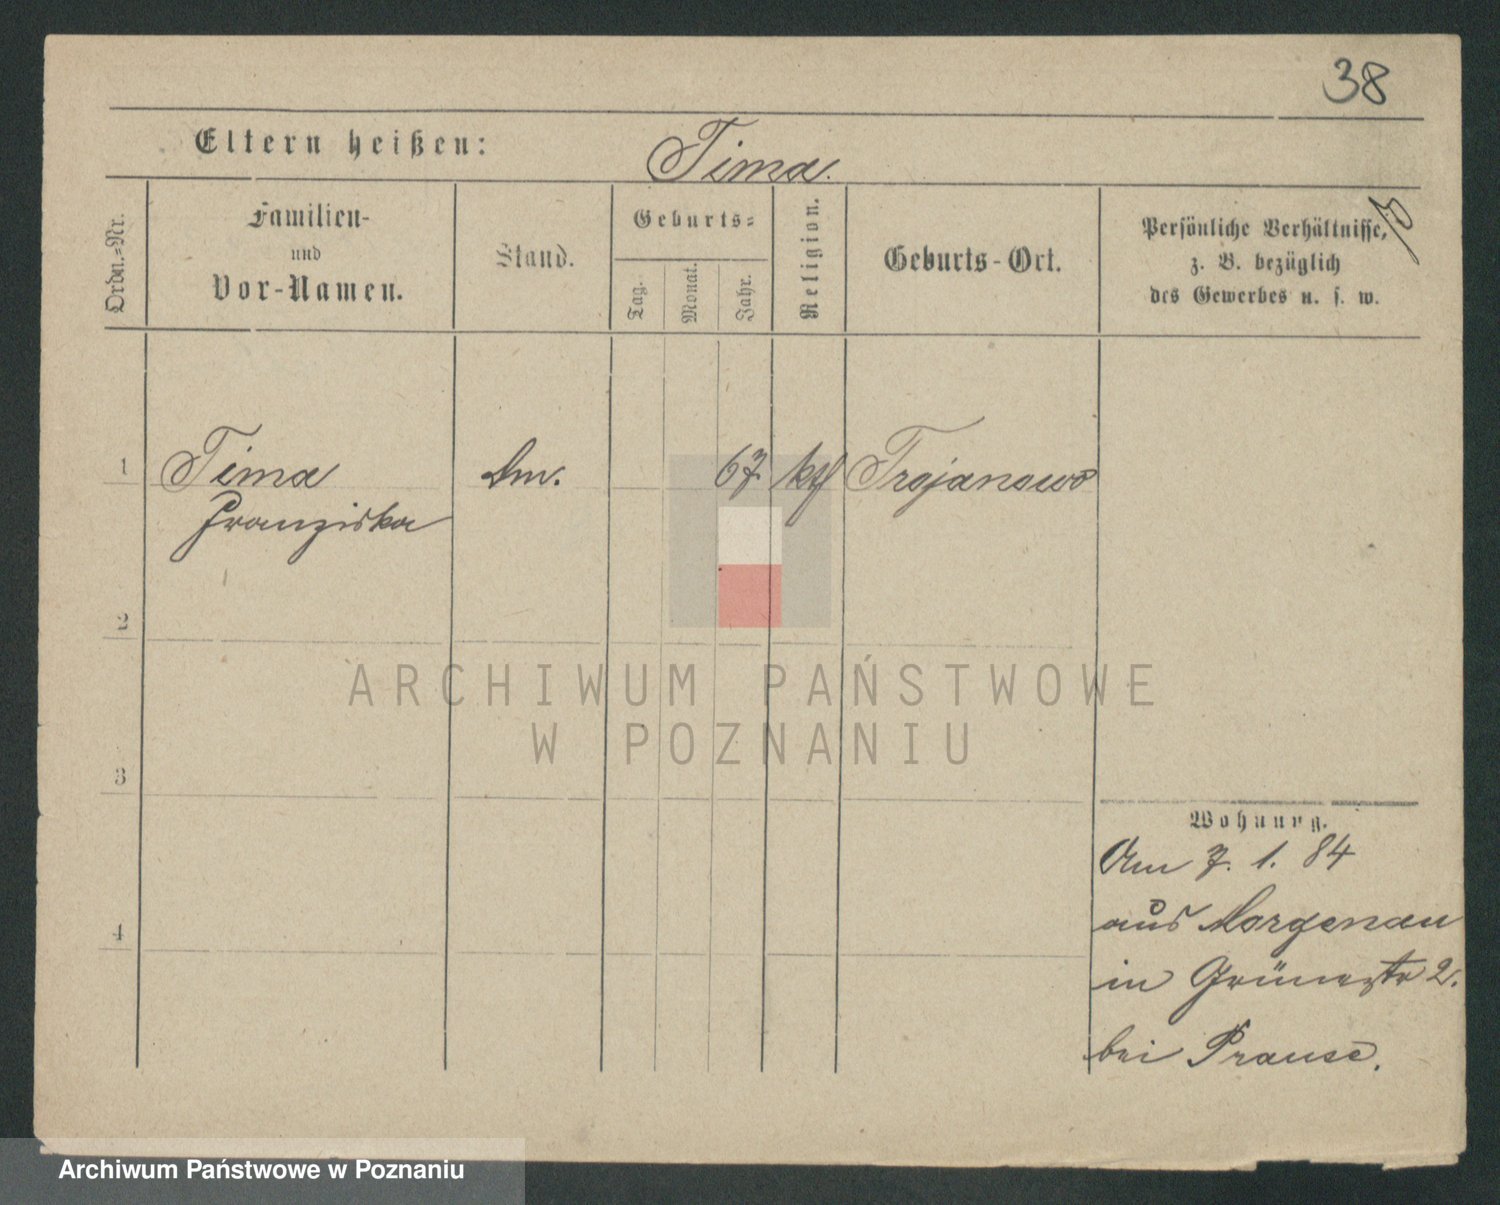 38
Eltern heißen: Tima.
Ordn.-Nr.
Familien-
und
Vor-Namen.
Stand.
Geburts-
Tag.
Monat.
Jahr.
Religion.
Geburts-Ort.
Persönliche Verhältnisse,
z. B. bezüglich
des Gewerbes u. s. w.
1 Tima Dm. 67 kth Trojanowo
Franziska
2
3
4
Wohnung.
Am 7. 1. 84
aus Morgenau
in Grünestr 2.
bei Prause.
ARCHIWUM PAŃSTWOWE
W POZNANIU
Archiwum Państwowe w Poznaniu